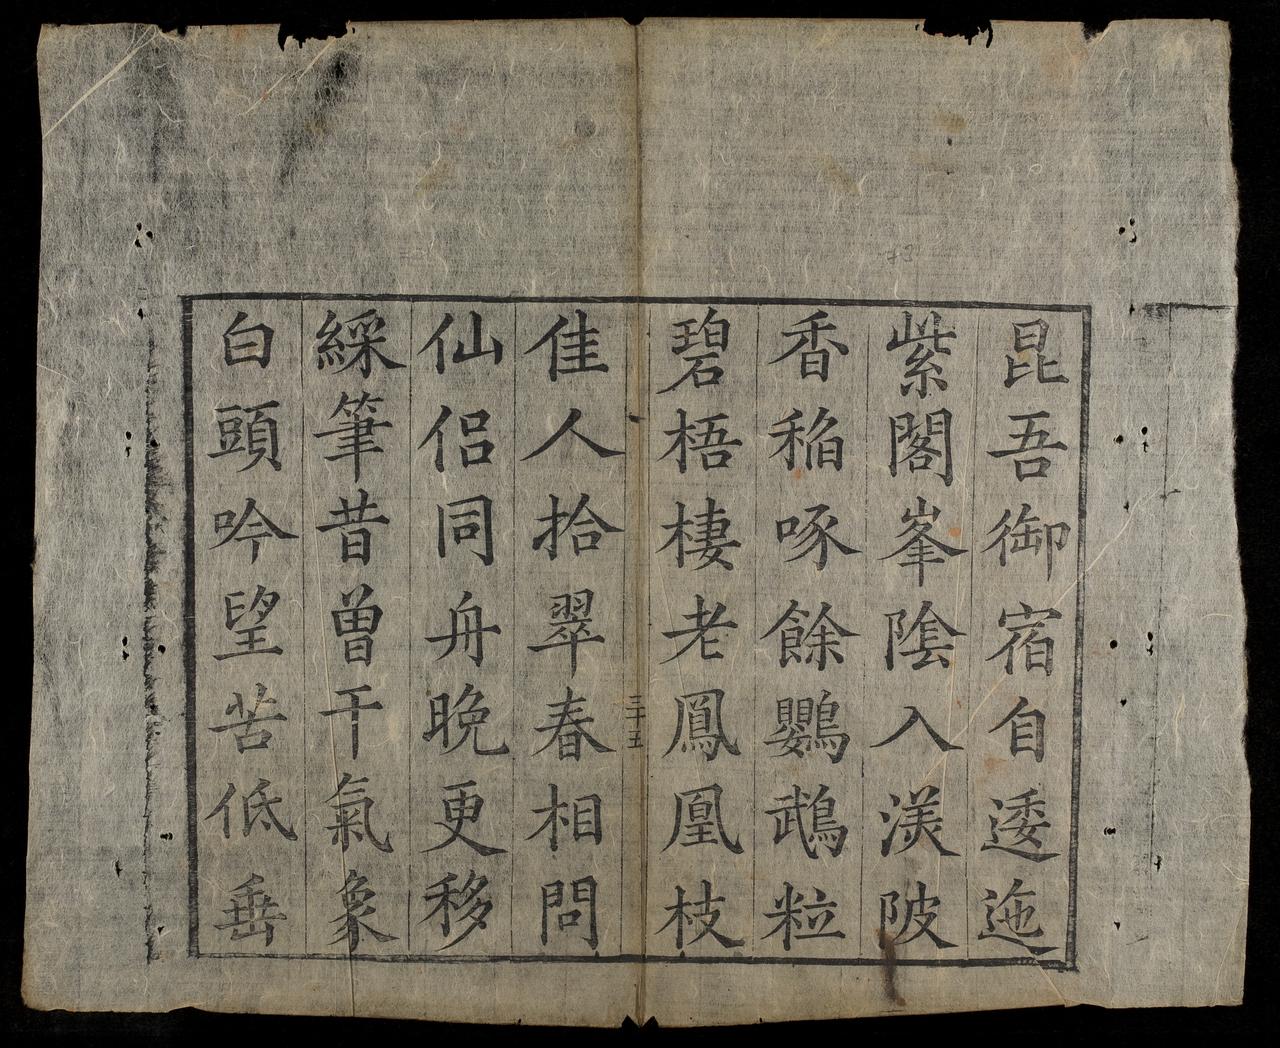 昆吾御宿自逶迤
紫閣峯陰入渼陂
香稻啄餘鸚鵡粒
碧梧棲老鳳凰枝
三十五
佳人拾翠春相問
仙侶同舟晚更移
綵筆昔曾干氣象
白頭吟望苦低垂